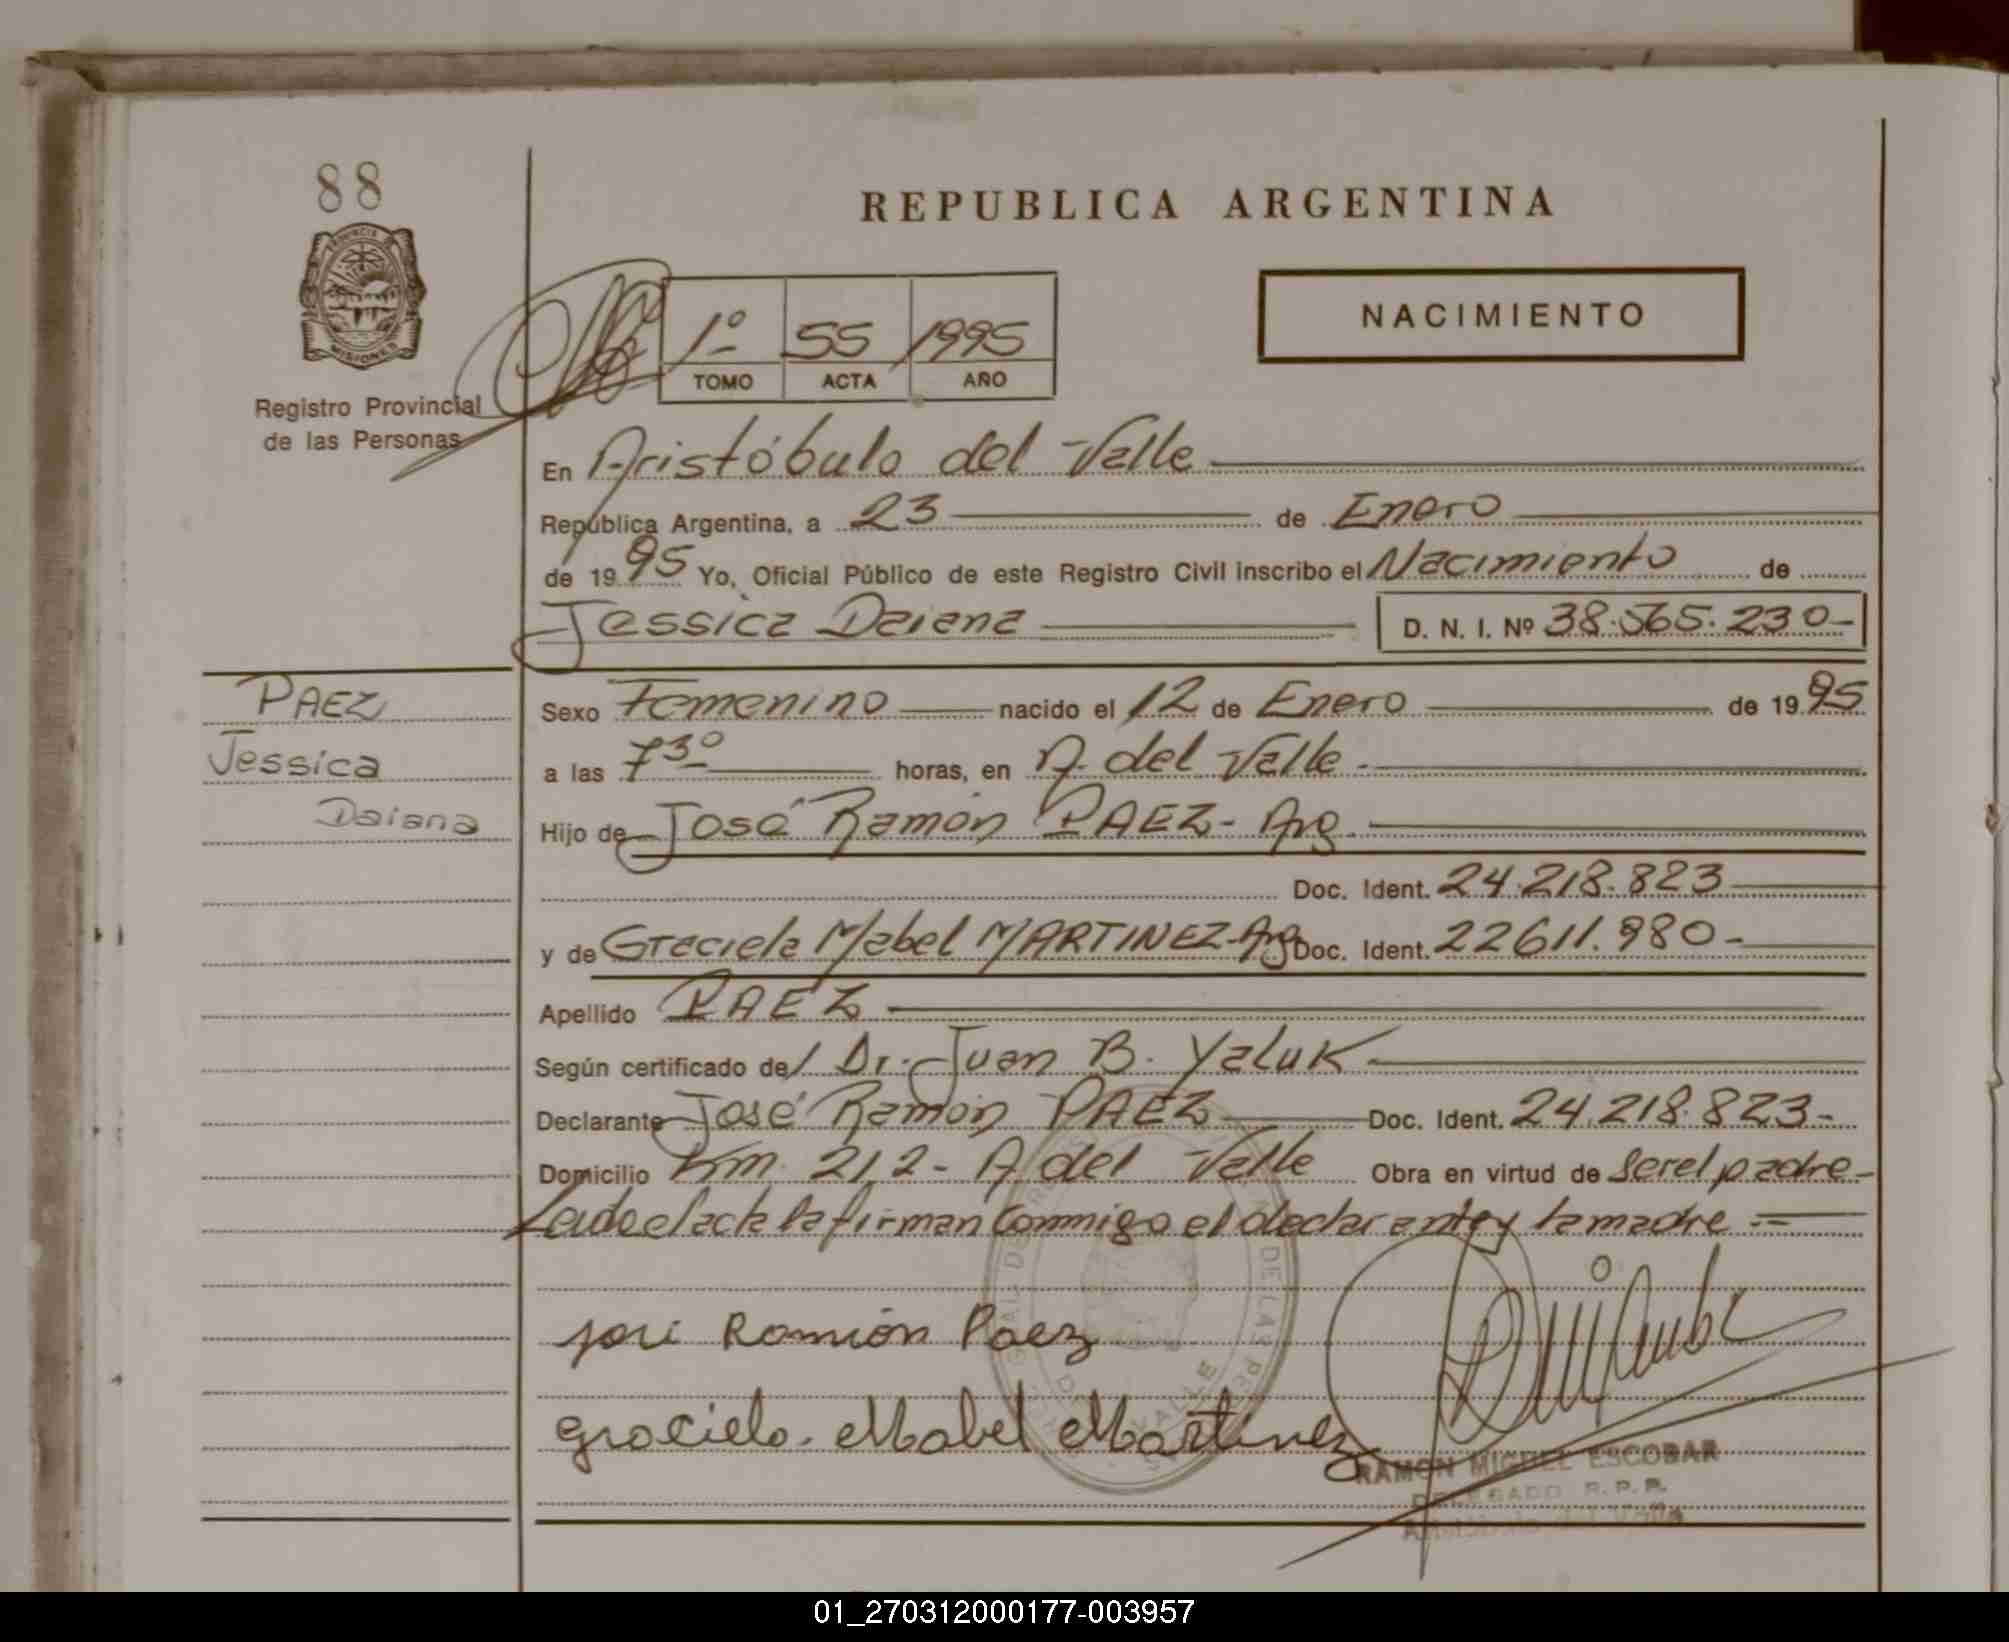 88
REPUBLICA ARGENTINA
PROVINCIA DE
MISIONES
Registro Provincial
de las Personas
1º 55 1995
TOMO ACTA AÑO
NACIMIENTO
En Aristóbulo del Valle
República Argentina, a 23 de Enero
de 1995 Yo, Oficial Público de este Registro Civil inscribo el Nacimiento de
Jessica Daiana D. N. I. Nº 38.565.230-
PAEZ
Jessica
Daiana
Sexo Femenino nacido el 12 de Enero de 1995
a las 7 30 horas, en A. del Valle.
Hijo de José Ramón PAEZ- Arg.
Doc. Ident. 24.218.823
y de Graciela Mabel MARTINEZ-Arg Doc. Ident. 22611.980-
Apellido PAEZ
Según certificado de/ Dr. Juan B. Yaluk
Declarante José Ramón PAEZ Doc. Ident. 24.218.823-
Domicilio Km. 212- A. del Valle Obra en virtud de ser el padre-
Leida el acta la firman conmigo el declarante y la madre
José Ramión Paez
Graciela Mabel Martinez
RAMON MIGUEL ESCOBAR
DELEGADO R.P.P.
Aristóbulo del Valle
01_270312000177-003957